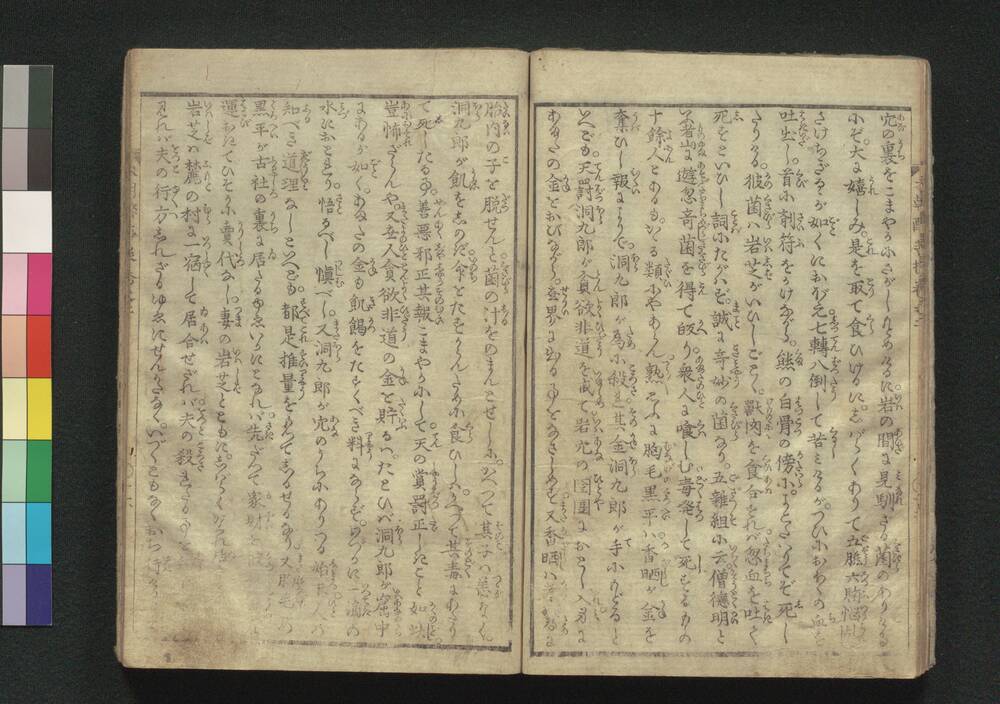 穴の裏をこまやかにさがしもとめけるに岩の間に見馴ざる菌のありける
にぞ。大に嬉しみ。是を取て食ひけるに。しばらくありて五臓六腑悩乱
さけちぎるゝが如くにおぼえ七轉八倒して苦しみけるが。つひにおほくの血を
吐出し。首に割符をかけながら。熊の白骨の傍にまろびてぞ死し
たりける。彼菌は岩芝がいひしごとく。獣肉を食合すれば忽血を吐て
死すといひし詞にたがはず。誠に奇妙の菌なり。五雜組に云僧德明と
いふ者山に遊忽奇菌を得て皈り衆人に喰しむ毒発して死するもの
十餘人とあるも。かゝる類にやあらん。熟おもふに胸毛黒平は香晒が金を
奪ひし報によりて。洞九郎が為に殺され其金洞九郎が手にわたると
いへども。天罰洞九郎が貪欲非道を戒て岩穴の囹圄におとし入身に
あまたの金をおびながら。世界にある事をなさしめず。又香晒は
胎内の子を脱せんと菌の汁をのまんとせしに。かへつて其子は恙なく。
洞九郎が飢をしのぎ。命をたもたんために食ひしに。かへつて其毒にあたり
て死したる事。善悪邪正其報こまやかにして。天の賞罰正しきこと如此
豈怖ざらんや。又世人貪欲非道の金を貯るは。たとひば洞九郎が窟中
にあるが如く。あまたの金も飢餲をたすくべき料にならず。一滴の
水におとれり。悟るべし慎べし。又洞九郎が穴のうちにありつる
知べき道理なしといへども。都是推量をもつてしるせるなり。又胸毛
黒平が古社の裏に居たるゆゑいかにとなれば。先だつて家財を
運おきてひそかに賣代なし。妻の岩芝とともに。しばらくかくれ
岩芝は麓の村に一宿して居合せざれば。夫の殺されたる事を
しれば夫の行方しれざるゆゑにせんかたなく。いづくともなく